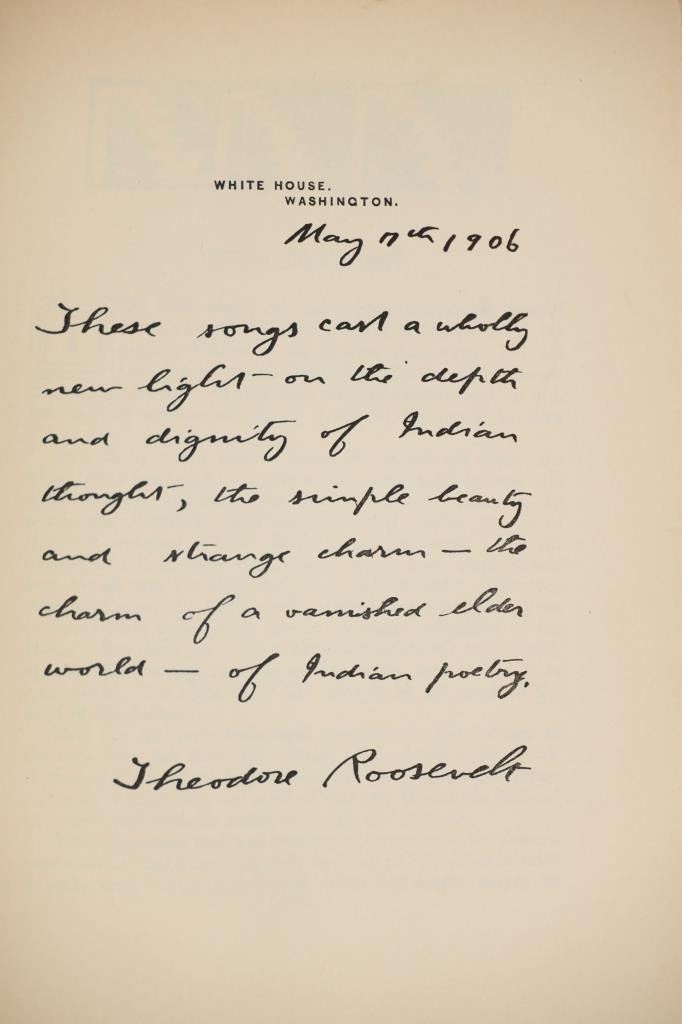 WHITE HOUSE.
WASHINGTON.
May 7th 1906
These songs cast a wholly
new light on the depth
and dignity of Indian
thought, the simple beauty
and strange charm — the
charm of a vanished elder
world — of Indian poetry.
Theodore Roosevelt